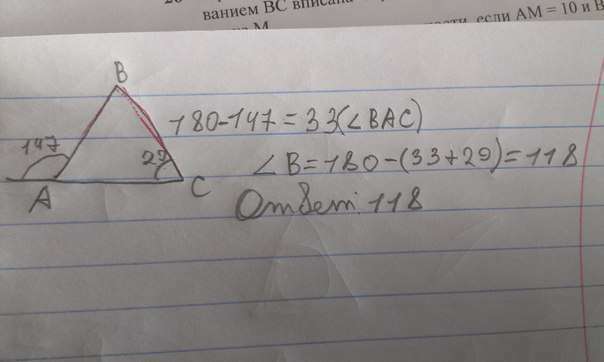 ванием BC вписана
если AM = 10 и B
B
180-147=33(∠BAC)
147
29
∠B=180-(33+29)=118
A
C
Ответ: 118